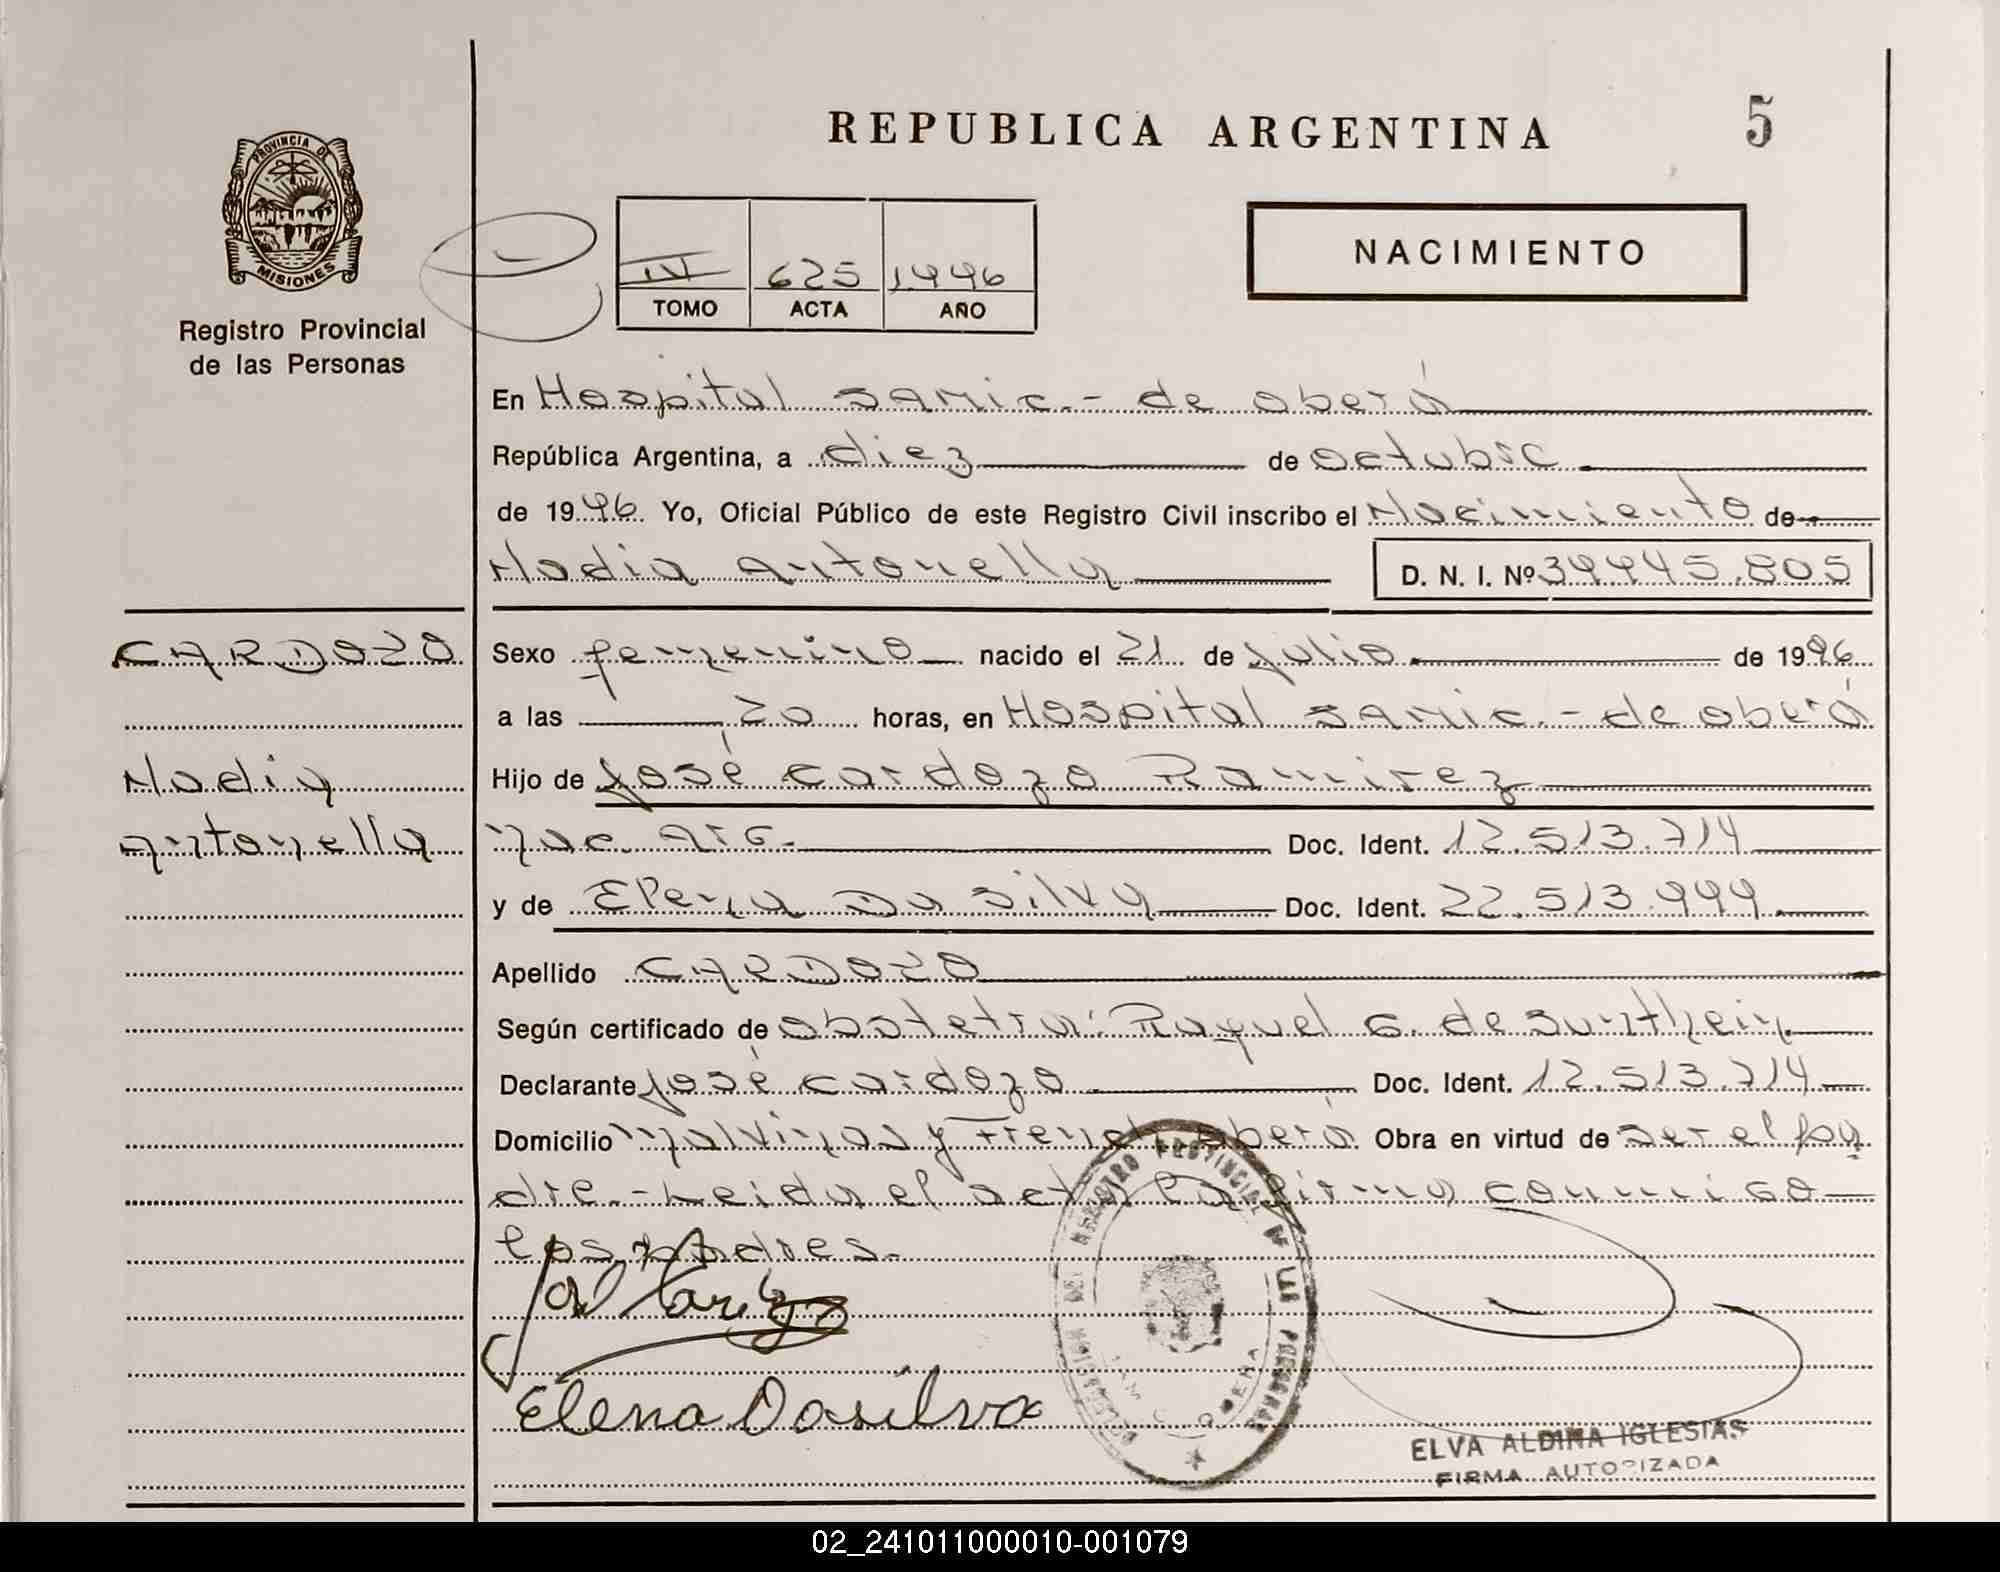 REPUBLICA ARGENTINA
5
PROVINCIA DE
MISIONES
Registro Provincial
de las Personas
IV 625 1996
TOMO ACTA AÑO
NACIMIENTO
En Hospital SAMIC.- de oberá
República Argentina, a diez de octubre
de 1996 Yo, Oficial Público de este Registro Civil inscribo el Nacimiento de
Nadia antonella
D. N. I. Nº 39945.805
CARDOZO
Nadia
antonella
Sexo femenino nacido el 21 de julio de 1996
a las 20 horas, en Hospital SAMIC.- de oberá
Hijo de José cardozo Ramirez
nac. Arg. Doc. Ident. 12.513.714
y de Elena Da Silva Doc. Ident. 22.513.999
Apellido CARDOZO
Según certificado de obstetra: Raquel G. de
Declarante José cardozo Doc. Ident. 12.513.714
Domicilio malvinas y French oberá. Obra en virtud de ser el pa
dre.- Leida el acta la firman conmigo
los padres.
José Cardozo
Elena Dasilva
REGISTRO PROVINCIAL DE LAS PERSONAS
OBERA
ELVA ALDINA IGLESIAS
FIRMA AUTORIZADA
02_241011000010-001079